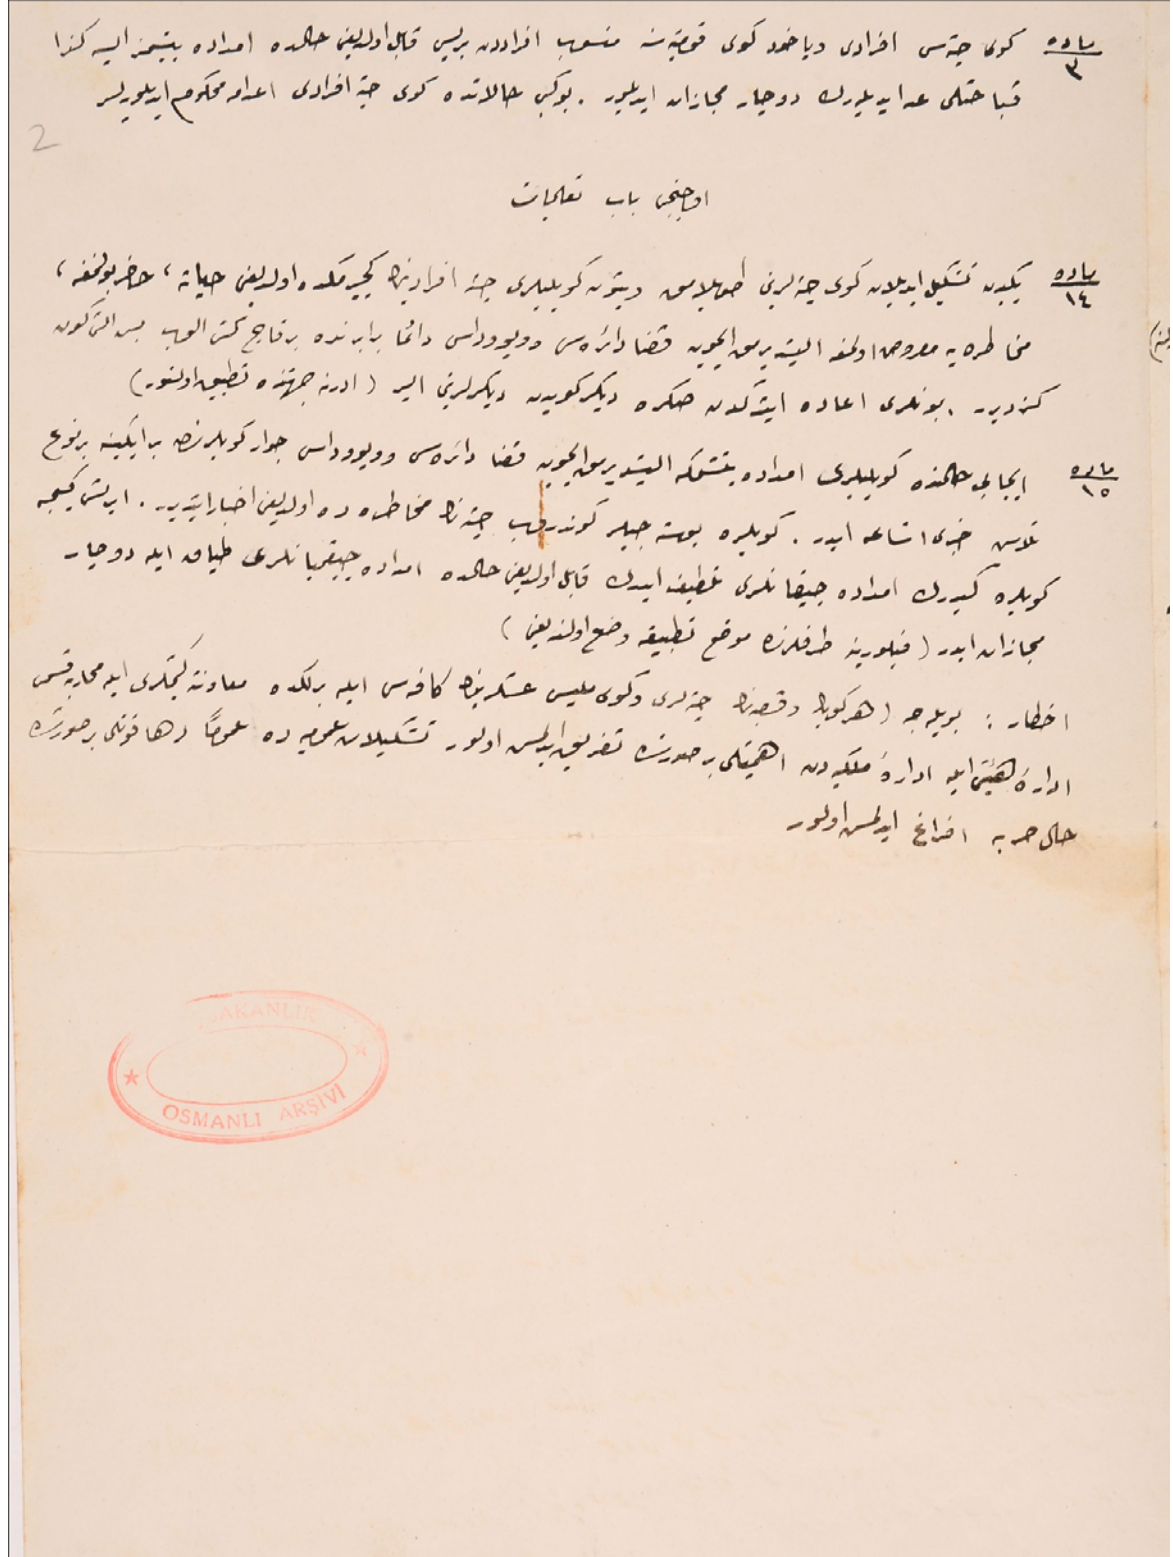 ماده ٣ كوى چته‌سى افرادى وياخود كوى قوميته‌سنه منسوب افراددن بريسى قابل اولديغى حالده امداده يتيشمز ايسه كذا
قباحتلى عد ايديله‌رك دوچار مجازات ايديلور . بوكبى حالاتده كوى چته افرادى اعدامه محكوم ايديلورلر
2
اوچنجى باب تعليمات
ماده ١٤ يكيدن تشكيل ايديلان كوى چته‌لرينى طوپلامق وبتون كويليلرى چته افرادينك كچيرمكده اولديغى حياته ، حاضر بولنمغه ،
مخاطره‌يه معروض اولمغه اليشديرمق ايچون قضا دائره‌سى وويووداسى دائما برابرنده برقاچ كشى الوب بش التى كون
كزدير . بونلرى اعاده ايتدكدن صكره ديكر كويدن ديكرلرينى الير ( ادرنه جهتنده تطبيق اولنور )
ماده ١٥ ايجابى حالنده كويليلرى امداده يتشمكه اليشديرمق ايچون قضا دائره‌سى وويووداسى جوار كويلرك بر ايكيسنه برنوع
تلاش خبرى اشاعه ايدر . كويلره پوسته‌جيلر كوندروب چته‌نك مخاطره‌ده اولديغنى اخبار ايتدير . ايرتسى كيجه
كويلره كيدرك امداده چيقانلرى تلطيف ايدرك قابل اولديغى حالده امداده چيقميانلرى طياق ايله دوچار
مجازات ايدر ( فيلورينه طرفلرنده موقع تطبيقه وضع اولنديغى )
اخطار : بويله‌جه ( هر كويك وقصبه‌نك چته‌لرى وكوى مليس عسكرينك كافه‌سى ايله برلكده معاونت كيجه‌لرى ايله محاربه قسمى
اداره هيئتى ايله اداره ملكيه‌دن اهميتلى بر صورتده تفريق ايدلمش اولور تشكيلات عموميه‌ده عموماً دها قوتلى بر صورتده
حال حربه افراغ ايدلمش اولور
BAKANLIK
OSMANLI ARŞİVİ